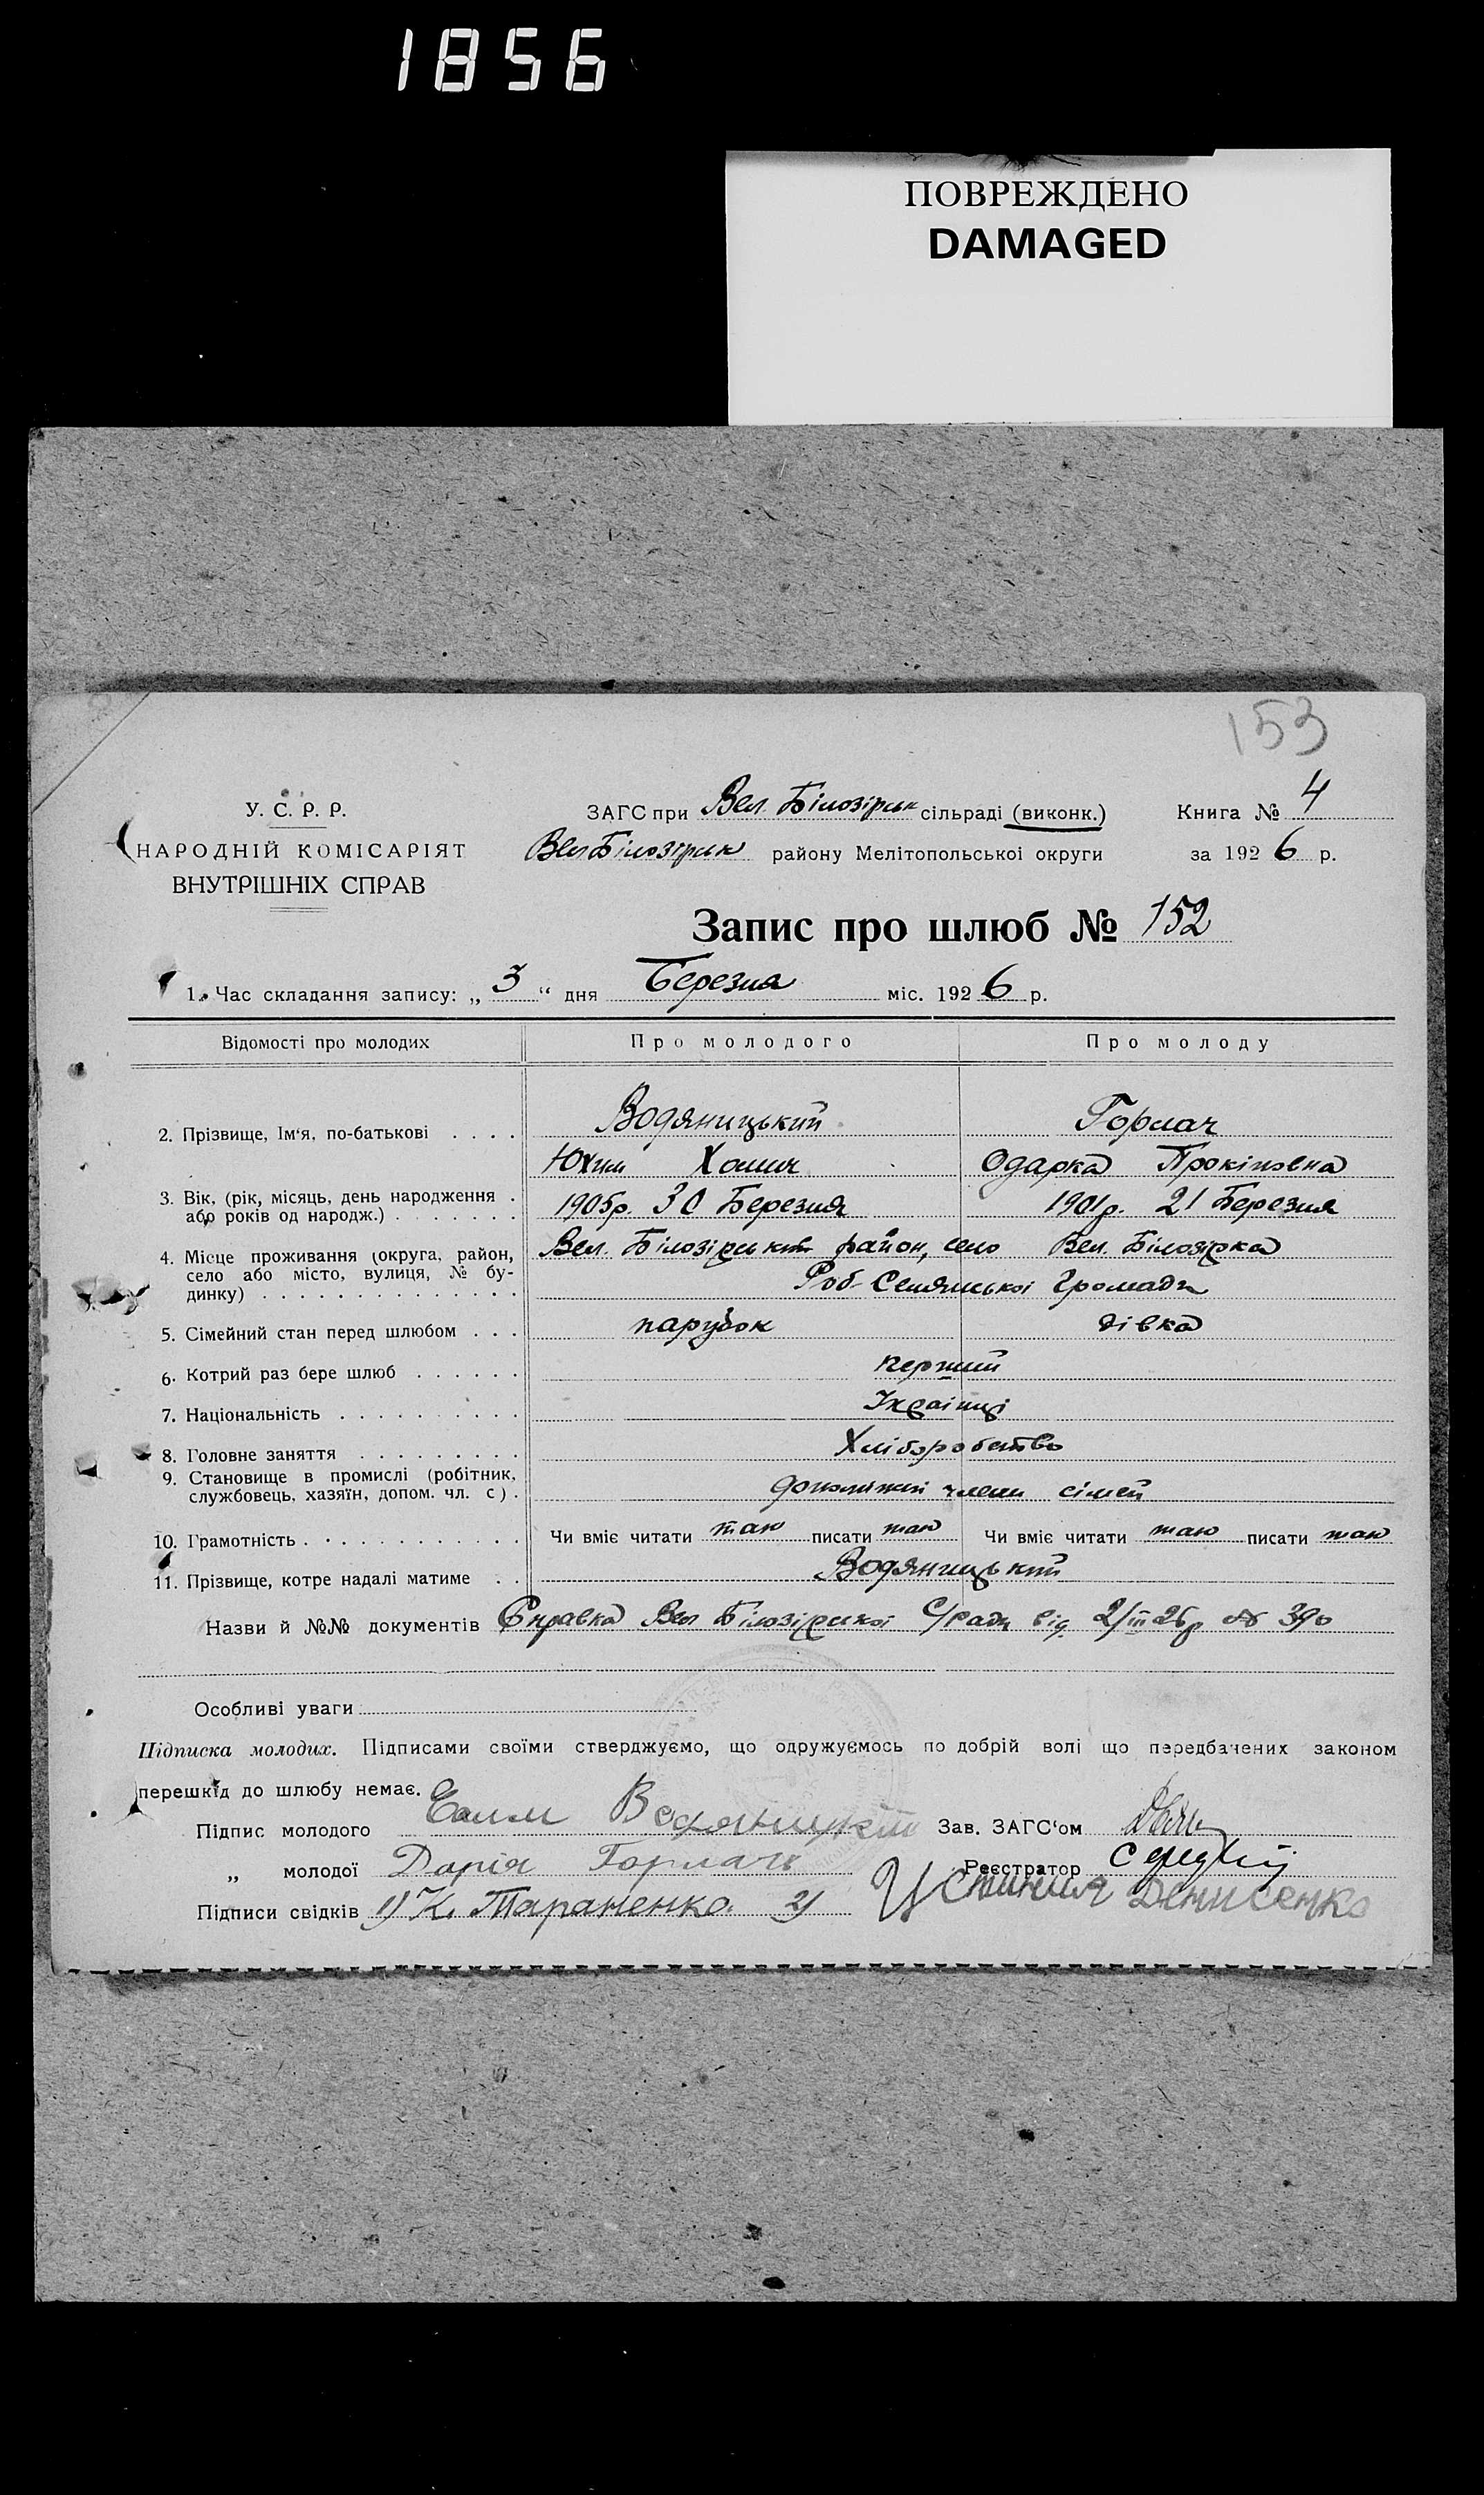 1856
ПОВРЕЖДЕНО
DAMAGED
153
У. С. Р. Р.
НАРОДНІЙ КОМІСАРІЯТ
ВНУТРІШНІХ СПРАВ
ЗАГС при Вел. Білозірськ сільраді (виконк.)
Вел Білозірськ району Мелітопольської округи
Книга № 4
за 1926 р.
Запис про шлюб № 152
1. Час складання запису: „ 3 “ дня Березня міс. 1926 р.
Відомості про молодих Про молодого Про молоду
2. Прізвище, Ім‘я, по-батькові . . . . Водяницький Горлач
Юхим Хомич Одарка Прокіповна
3. Вік, (рік, місяць, день народження . 1905р. 30 Березня 1901р. 21 Березня
або років од народж.) . . . . . . .
4. Місце проживання (округа, район, Вел. Білозірський район, село Вел. Білозірка
село або місто, вулиця, № бу-
динку) . . . . . . . . . . . . . . Роб-Селянської Громади
5. Сімейний стан перед шлюбом . . . парубок дівка
6. Котрий раз бере шлюб . . . . . . перший
7. Національність . . . . . . . . . . Українці
8. Головне заняття . . . . . . . . . Хліборобство
9. Становище в промислі (робітник,
службовець, хазяїн, допом. чл. с) . допоміжні члени сімей
10. Грамотність . . . . . . . . . . . . Чи вміє читати так писати так Чи вміє читати так писати так
11. Прізвище, котре надалі матиме . . Водяницький
Назви й №№ документів Справка Вел Білозірської С/ради від 2/III 26р № 390
Особливі уваги
Підписка молодих. Підписами своїми стверджуємо, що одружуємось по добрій волі що передбачених законом
перешкід до шлюбу немає.
Підпис молодого Водяницкий Зав. ЗАГС‘ом
„ молодої Дарія Горлачь Реєстратор
Підписи свідків 1) К. Тараненко. 2) Устиния Денисенко